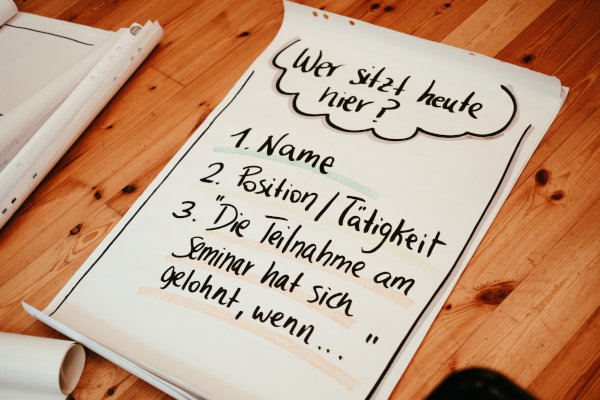 Wer sitzt heute
hier?
1. Name
2. Position/Tätigkeit
3. "Die Teilnahme am
Seminar hat sich
gelohnt, wenn... "